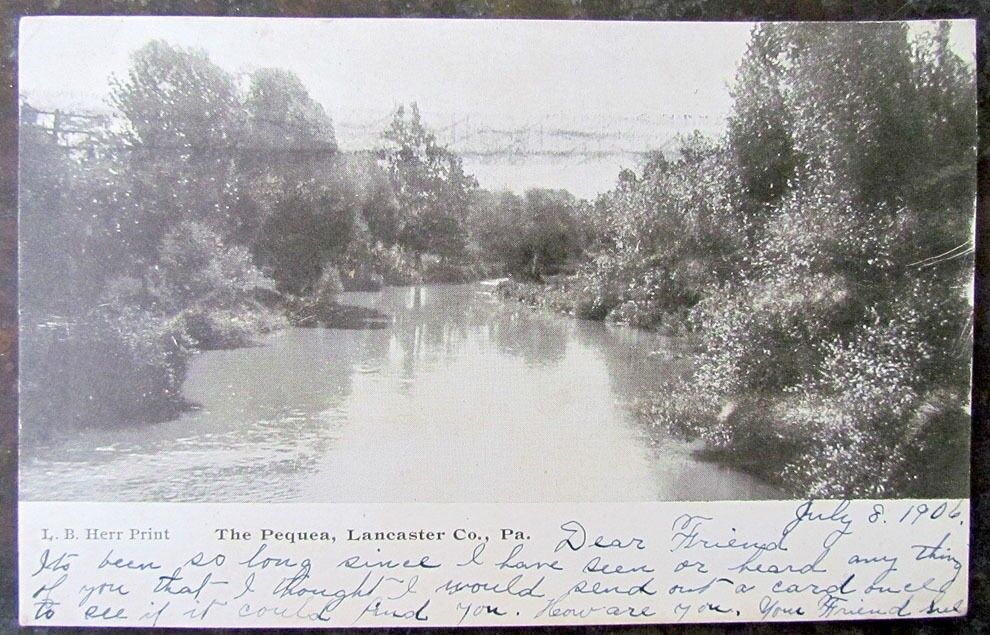 L. B. Herr Print
The Pequea, Lancaster Co., Pa.
July 8. 1906.
Dear Friend
Its been so long since I have seen or heard any thing
of you that I thought I would send out a card once
to see if it could find you. How are you. Your Friend